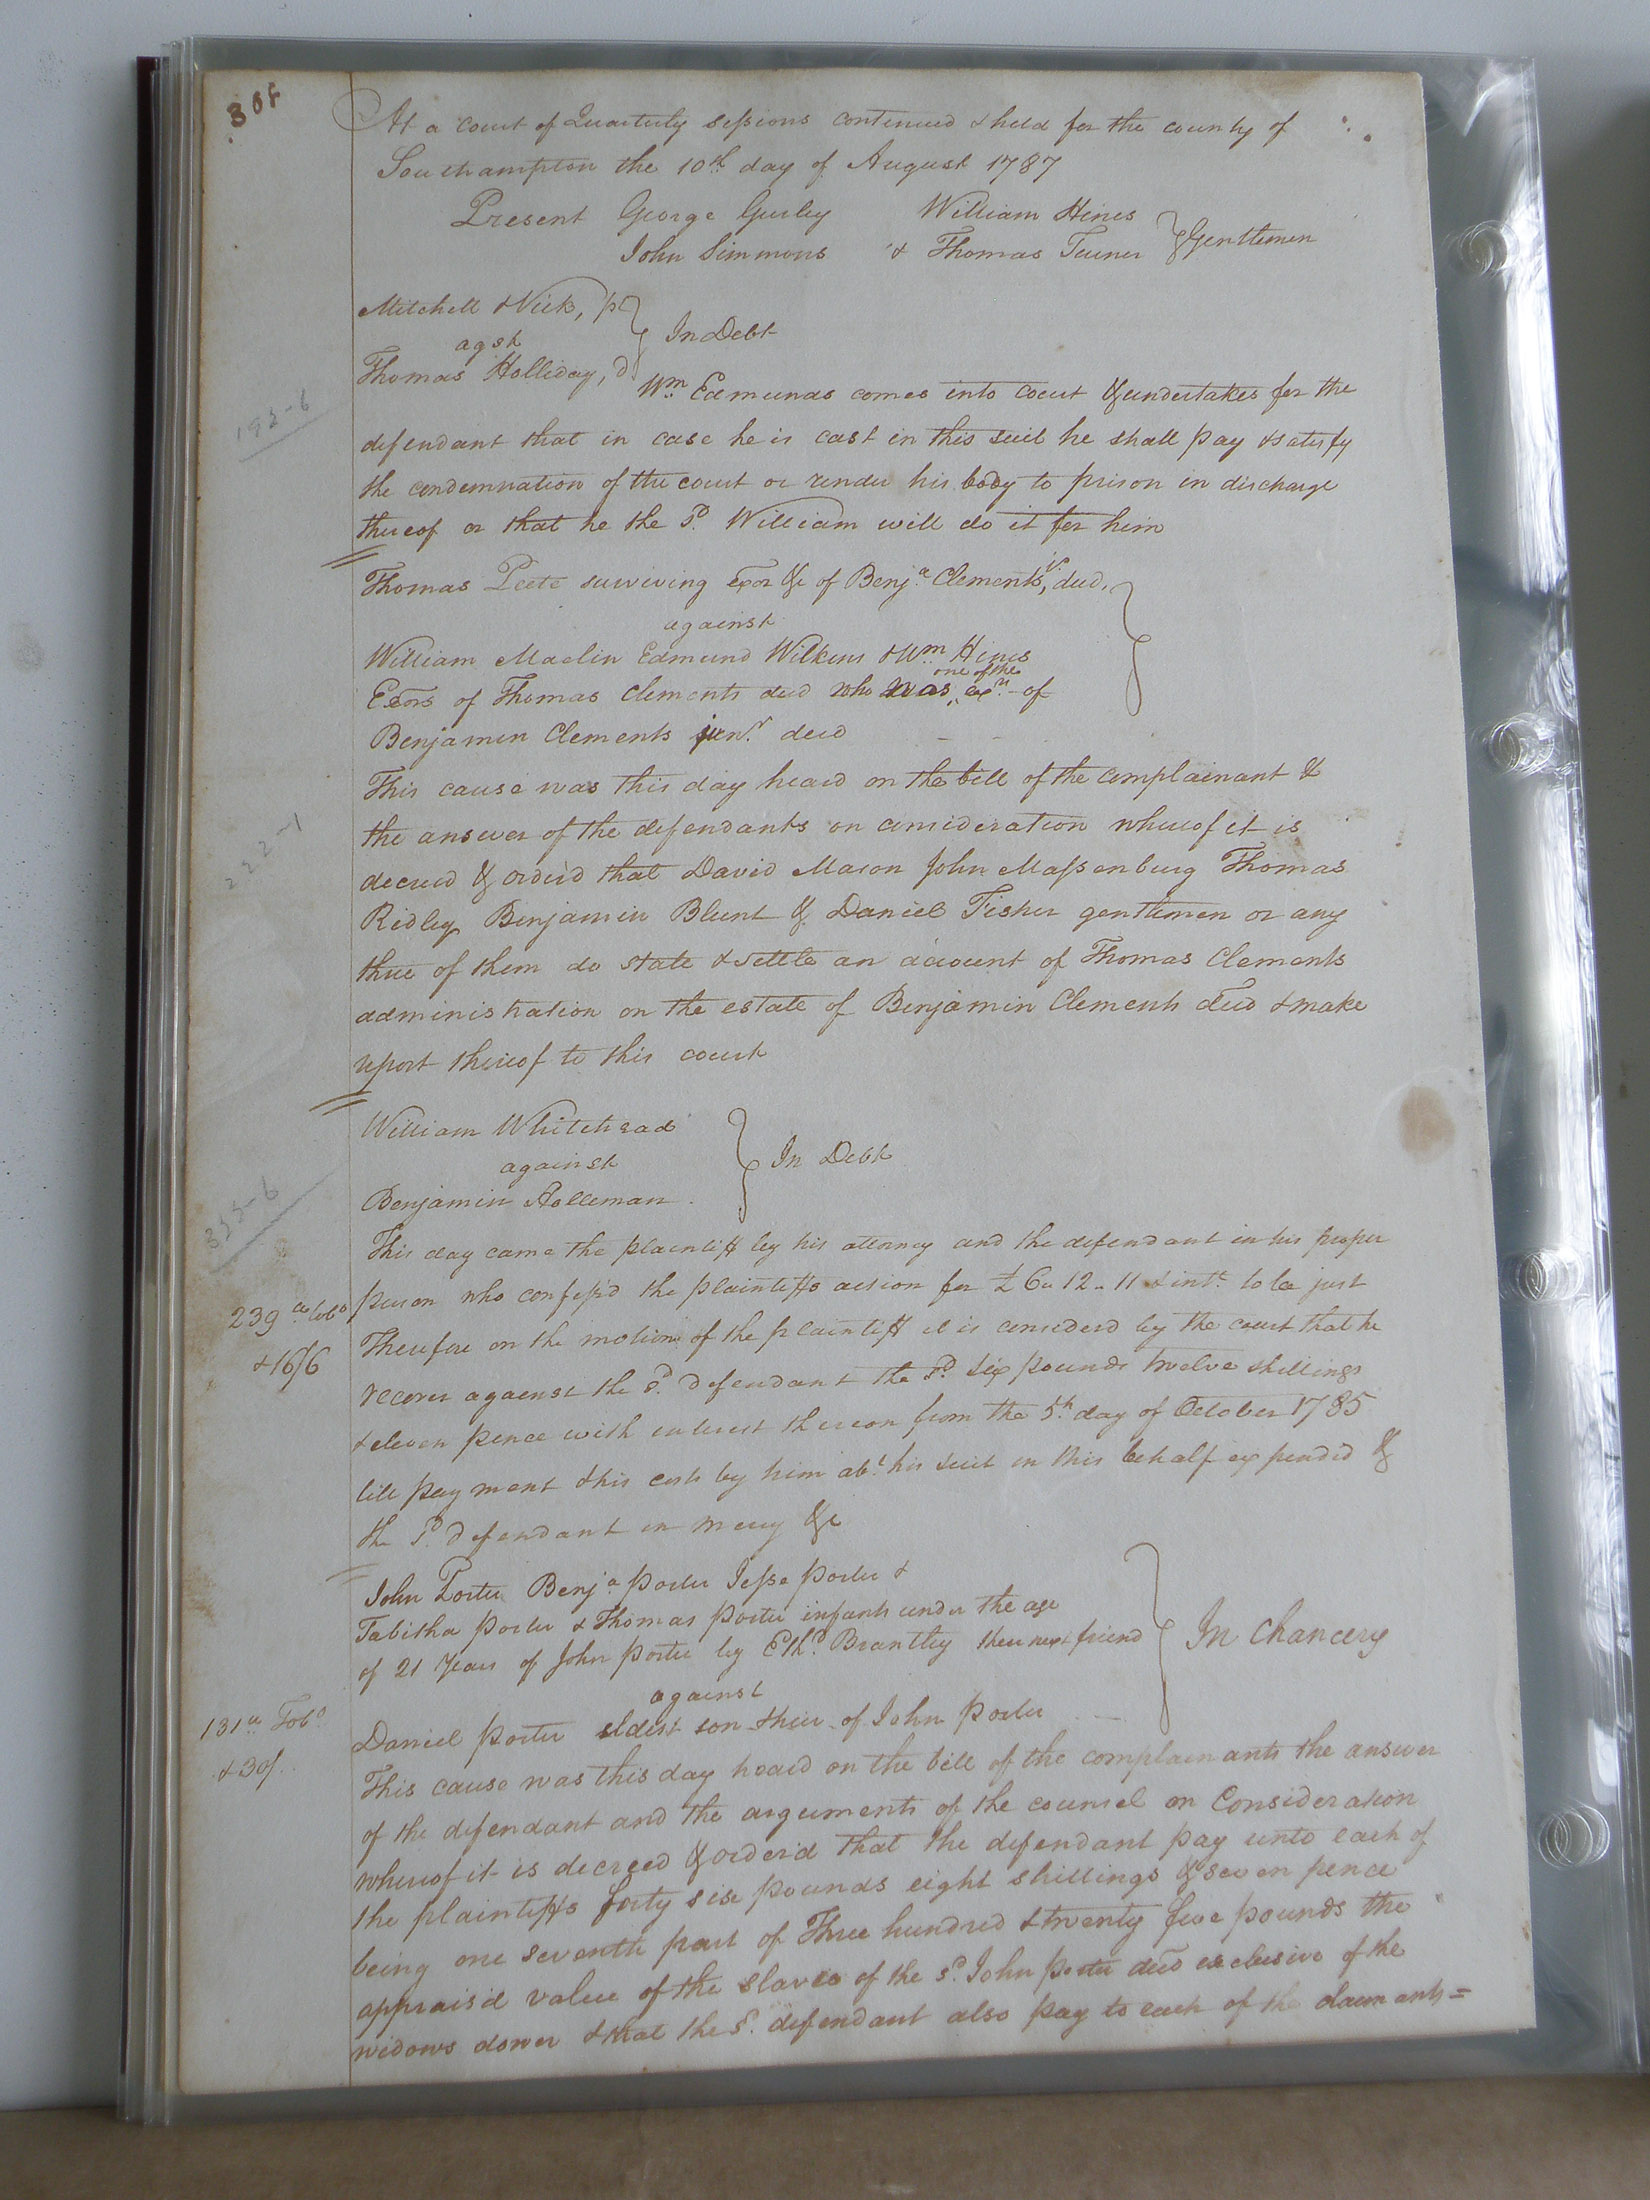 At a court of Quarterly sessions continued & held for the county of
Southampton the 10th day of August 1787
Present George Gurley William Hines
John Simmons & Thomas Turner } Gentlemen
Mitchell & Vick, pl
agst } In Debt
Thomas Holliday, d.
Wm. Edmunds comes into court & undertakes for the
193-6
defendant that in case he is cast in this suit he shall pay & satisfy
the condemnation of the court or render his body to prison in discharge
thereof or that he the sd. William will do it for him
Thomas Peete surviving exor &c of Benja. Clements, jr. decd.
against
William Maclin Edmund Wilkins & Wm. Hines
Exors of Thomas Clements decd who was one of the exrs. of
Benjamin Clements junr. decd
This cause was this day heard on the bill of the complainant &
the answer of the defendants on consideration whereof it is
222-1
decreed & order'd that David Mason John Massenburg Thomas
Ridley Benjamin Blunt & Daniel Fisher gentlemen or any
three of them do state & settle an account of Thomas Clements
administration on the estate of Benjamin Clements decd & make
report thereof to this court
William Whitehead
against } In Debt
Benjamin Holleman
This day came the plaintiff by his attorney and the defendant in his proper
239 a tobo person who confess'd the plaintiffs action for £ 6 " 12 " 11 & intt. to be just
& 16/6 Therefore on the motion of the plaintiff it is consider'd by the court that he
recover against the sd. defendant the sd. six pounds twelve shillings
& eleven pence with interest thereon from the 5th day of October 1785
till payment & his costs by him abt. his suit in this behalf expended &
the sd. defendant in mercy &c
John Porter Benja Porter Jesse Porter &
Tabitha Porter & Thomas Porter infants under the age
of 21 Years of John Porter by Ethd. Brantley their next friend } In Chancery
against
131 a Tobo. Daniel Porter eldest son & heir of John Porter
& 30/. This cause was this day heard on the bill of the complainants the answer
of the defendant and the arguments of the counsel on Consideration
whereof it is decreed & order'd that the defendant pay unto each of
the plaintiffs forty six pounds eight shillings & seven pence
being one seventh part of Three hundred & twenty five pounds the
apprais'd value of the slaves of the sd. John Porter decd exclusive of the
widows dower & that the sd. defendant also pay to each of the claimants =